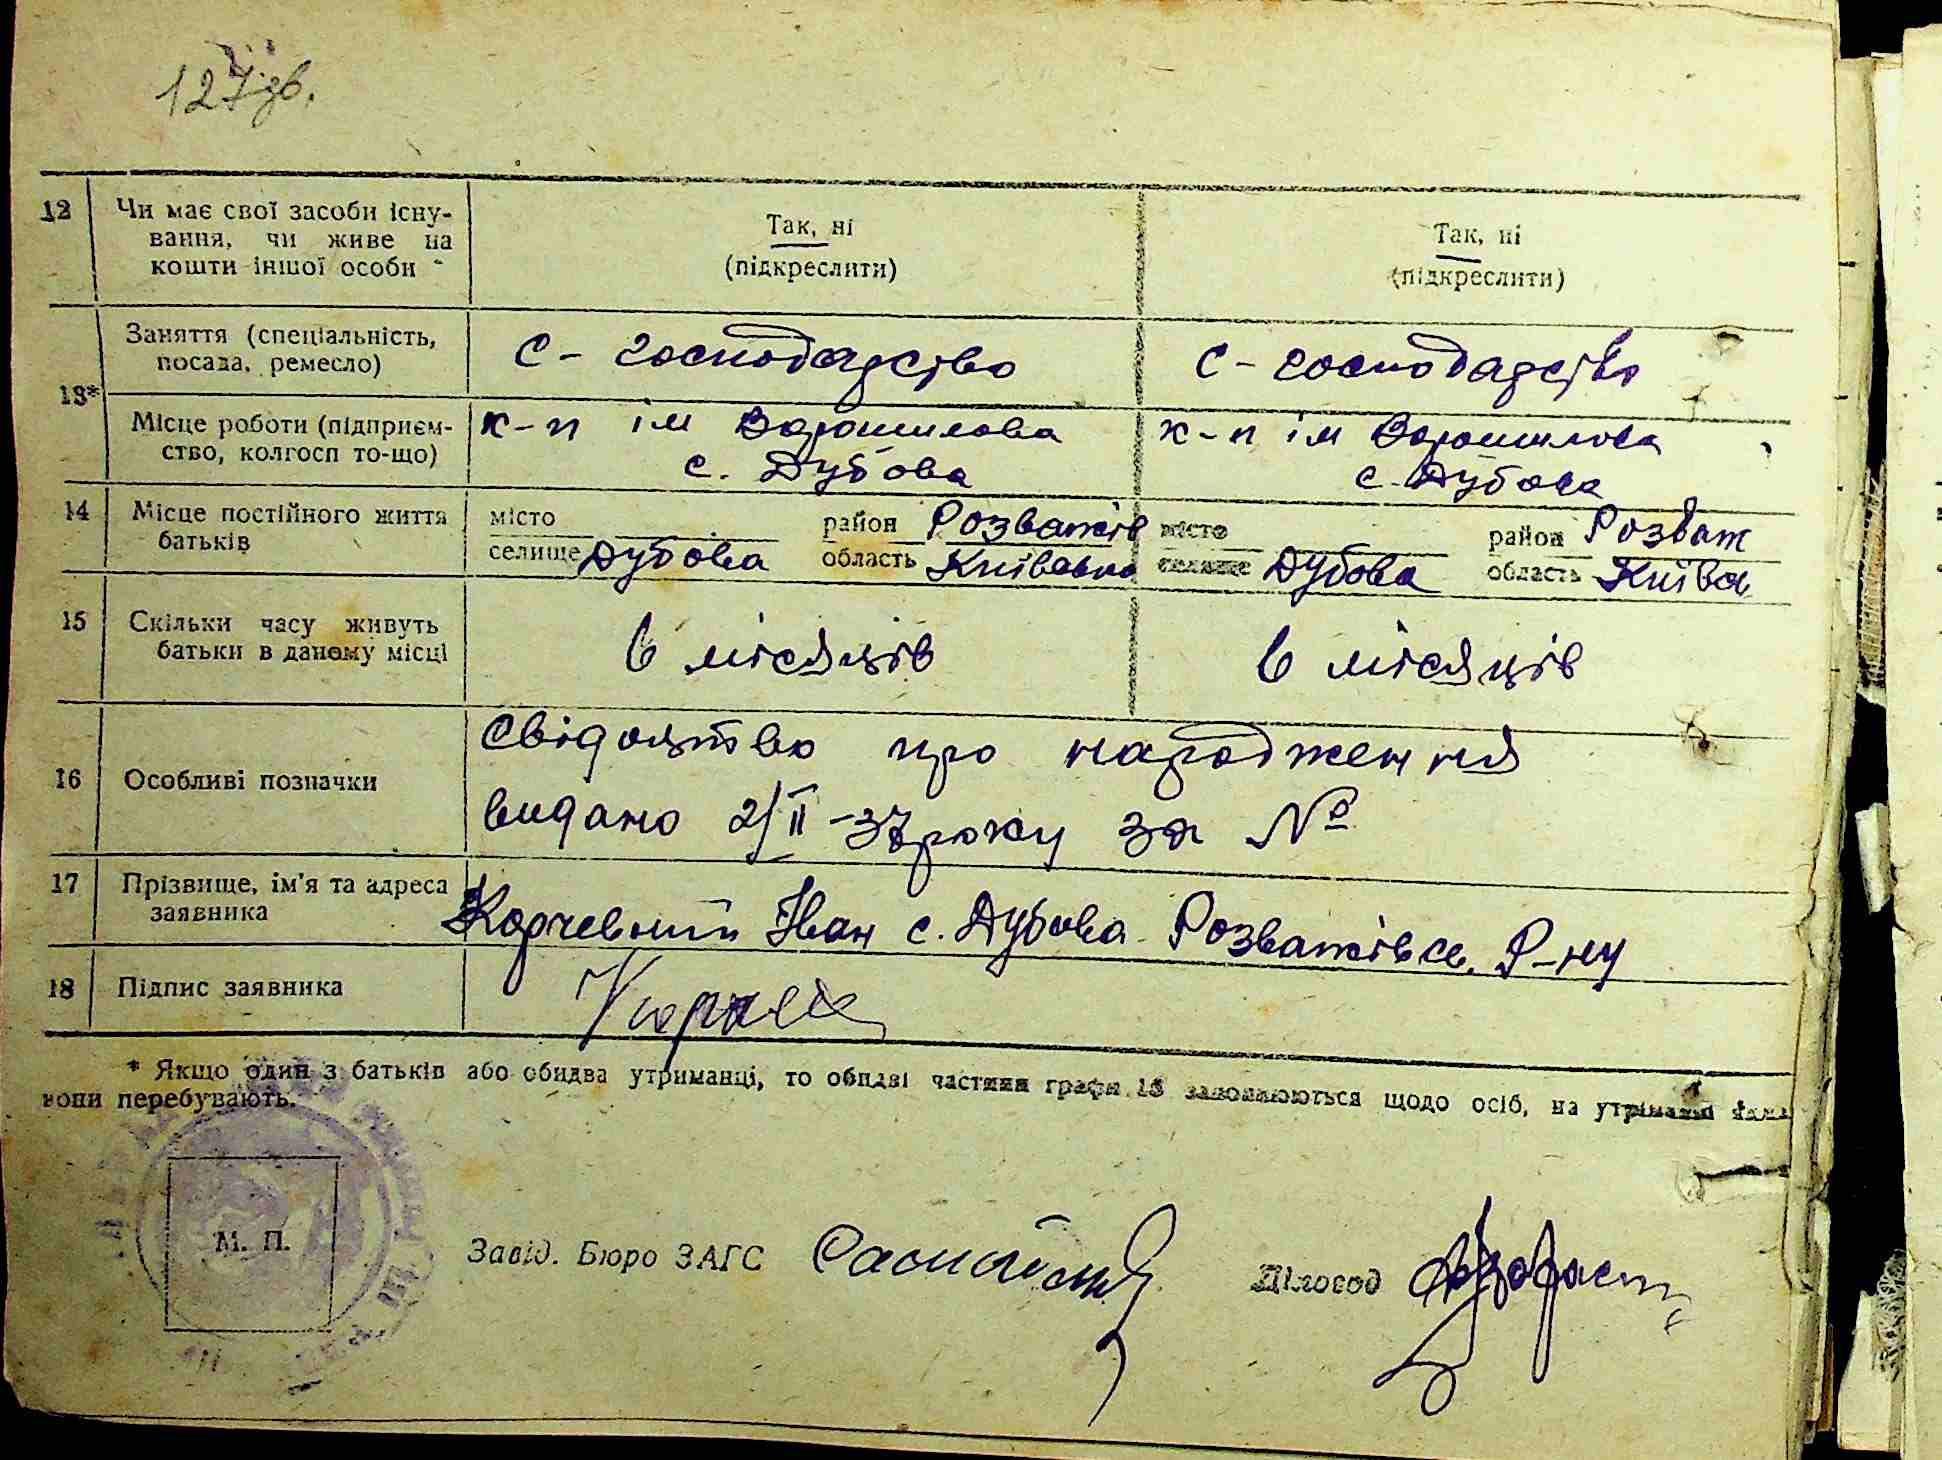 127 зв.
12 Чи має свої засоби існу- Так, ні Так, ні
вання, чи живе на (підкреслити) (підкреслити)
кошти іншої особи
13* Заняття (спеціальність, с - господарство с - господарство
посада, ремесло)
Місце роботи (підприєм- к-п ім Ворошилова к-п ім Ворошилова
ство, колгосп то-що) с. Дубова с. Дубова
14 Місце постійного життя місто район Розважів місто район Розваж
батьків селище Дубова область Київська селище Дубова область Київа
15 Скільки часу живуть 6 місяців 6 місяців
батьки в даному місці
16 Особливі позначки Свідоцтво про народження
видано 2/II-37 року за №
17 Прізвище, ім'я та адреса Корчевний Іван с. Дубова Розважівсь. Р-ну
заявника
18 Підпис заявника
* Якщо один з батьків або обидва утриманці, то обидві частини графи 13 заповнюються щодо осіб, на утриманні яких
вони перебувають.
М. П. Завід. Бюро ЗАГС Діловод